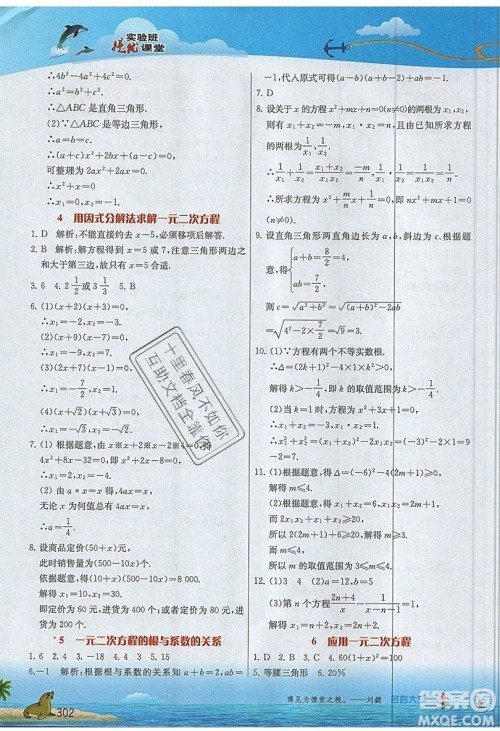 实验班
提优课堂
∴4b²-4a²+4c²=0.
∴a²=b²+c².
∴△ABC是直角三角形.
(2)∵△ABC是等边三角形,
∴a=b=c.
∴(a+c)x²+2bx+(a-c)=0,
可整理为2ax²+2ax=0.
∴x²+x=0.
∴x₁=0,x₂=-1.
4 用因式分解法求解一元二次方程
1. D 解析:不能直接约去x-5,必须移项后解答.
2. B 解析:解方程得到x=5或7,注意三角形两边之
和大于第三边,故只有x=5合适.
3. 6 4. 1/2或3 1/3 5. B
6. (1)(x+2)(x+3)=0,
∴x₁=-2,x₂=-3.
(2)(x+3)(x-1)=0,
∴x₁=-3,x₂=1.
(3)x(2x+7)=0,
∴x₁=0,x₂=-7/2.
(4)(x+√3)(x-√3)=0,
∴x₁=-√3,x₂=√3.
7. (1)根据题意,由x※x+2※x-2※4=0,得
4x²+8x-32=0,解得x₁=2,x₂=-4.
(2)由a*x=x,得4ax=x,
无论x为何值总有4ax=x,
∴a=1/4.
8. 设商品定价(50+x)元,
此时销售量为(500-10x)件.
依据题意,得(500-10x)(10+x)=8 000.
解得x=10或30.
即定价为60元,进货量为400个或定价为80元,进
货量为200个.
*5 一元二次方程的根与系数的关系
1. 6 2. 4 3. -2 4. 4 5. 15
6. -1 解析:根据根与系数的关系知a+b=2,ab=
-1,代入原式可得(a-b)(a+b-2)+ab=-1.
7. D
8. 设关于x的方程x²+mx+n=0(n≠0)的两根为x₁,x₂,
则有x₁+x₂=-m,x₁·x₂=n,且由已知所求方程的
两根为1/x₁,1/x₂.
∴1/x₁+1/x₂=(x₁+x₂)/(x₁x₂)=-m/n,1/x₁·1/x₂=1/(x₁x₂)=1/n.
∴所求方程为x²+(m/n)x+1/n=0,即nx²+mx+1=
0(n≠0).
9. 设直角三角形两边分别为a、b,斜边为c,
根据题意,得
{a+b=8/2,
ab=7/2,
则c=√(a²+b²)=√((a+b)²-2ab)
=√(4²-2×7/2)=√9=3.
10. (1)∵方程有两个不等实数根.
∴Δ>0,即4+4k>0,
解得k>-1,即k的取值范围为k>-1.
(2)当k=1时,方程为x²-2x-1=0,
∴x₁+x₂=2,x₁x₂=-1.
∴x₁²+x₂²=(x₁+x₂)²-2x₁x₂=4+2=6.
11. (1)根据题意,得Δ=(-6)²-4(2m+1)≥0,
解得m≤4.
(2)根据题意,得x₁+x₂=6,x₁x₂=2m+1,
而2x₁x₂+x₁+x₂≥20,
所以2(2m+1)+6≥20,解得m≥3,
而m≤4,
所以m的取值范围为3≤m≤4.
12. (1)3 4 (2)a=12,b=5
(3)第n个方程2n/x-(2n+4)/(x-1)=1,
解是x₁=n,x₂=
6 应用一元二次方程
1. B 2. C 3. C 4. 60(1+x)²=100
5. 等腰三角形 6. 20%
十里春风不如你
互助文档全靠你
302
博见为馈贫之粮。——刘勰
名言大
答案圈
MXQE.COM